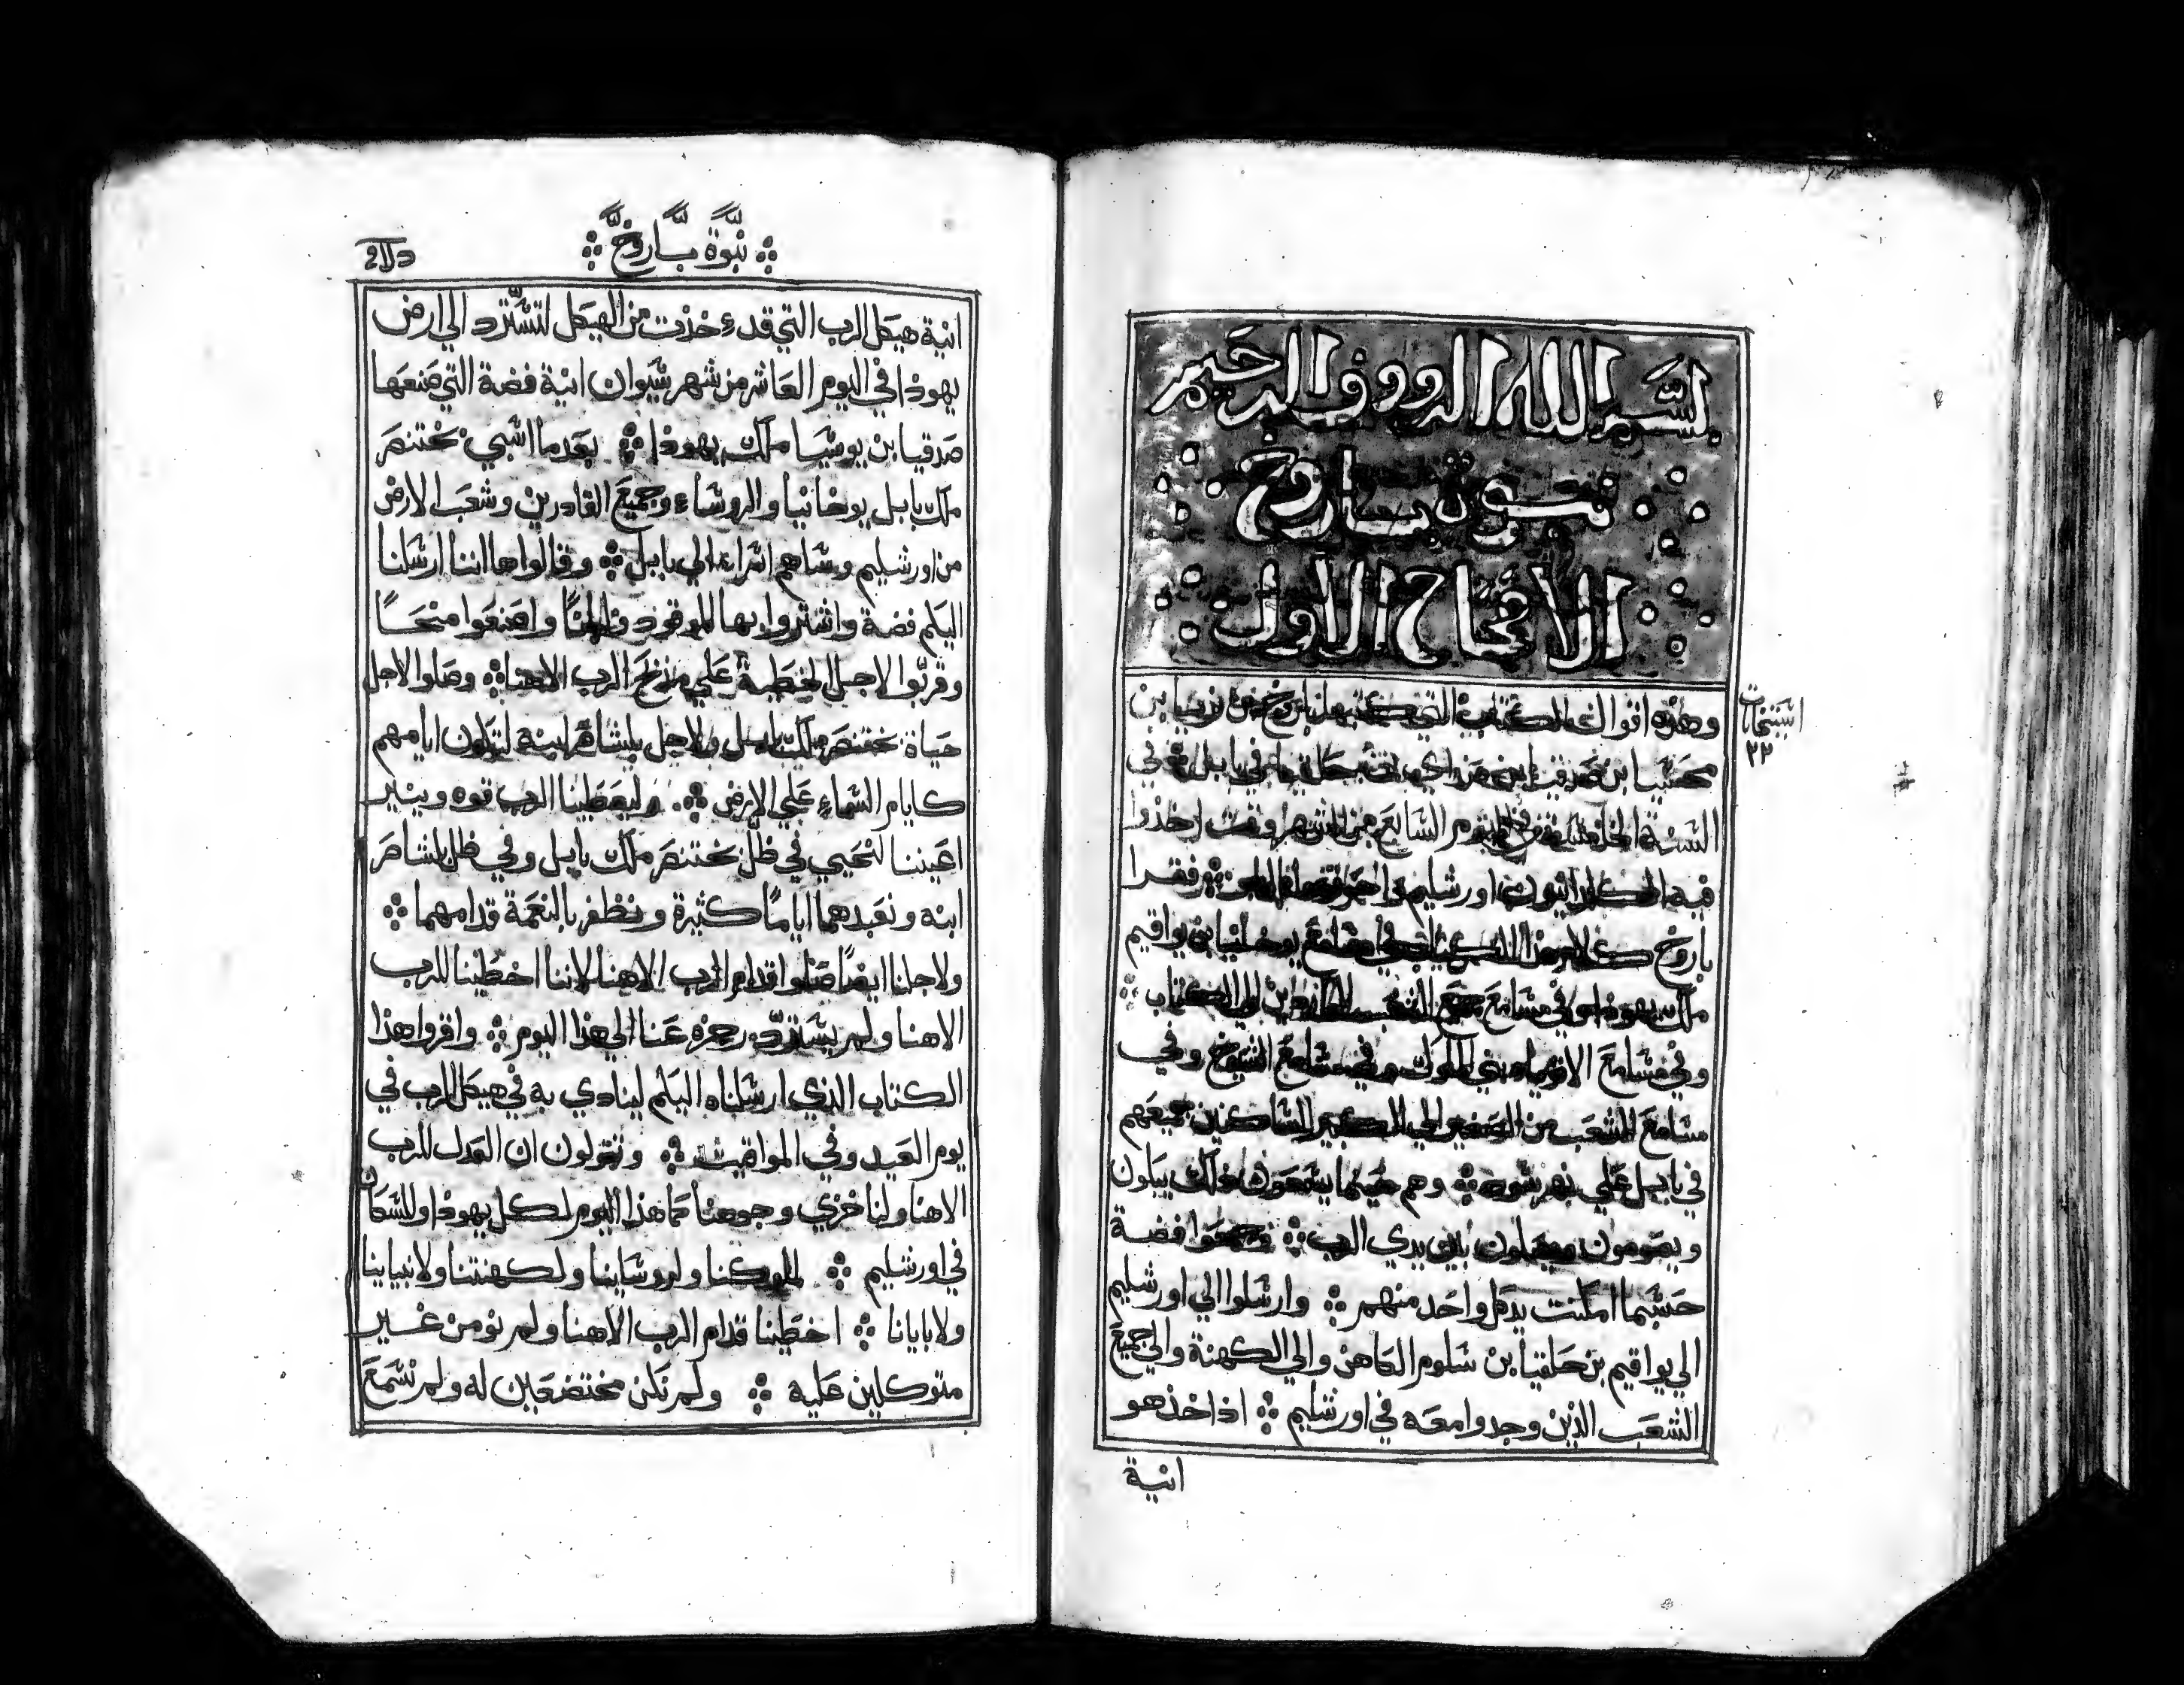 بسم الله الرووف الرحيم
نبوة باروخ
الافتتاح الاول
وهذه اقوال الكتاب التي كتبها باروخ بن نريا بن
محسيا بن صدقيا بن في بابل في
السنة الخامسة في اليوم السابع من الشهر وقت اخذوا
فيه الكلدانيون اورشليم واحرقوها بالنار ❖ فقرا
باروخ كلام هذا الكتاب في مسامع يوخانيا بن يواقيم
ملك يهوذا وفي مسامع جميع الشعب الي الكتاب ❖
وفي مسامع الاقويا بني الملوك وفي مسامع الشيوخ وفي
مسامع الشعب من الصغير الي الكبير الساكنين جميعهم
في بابل علي نهر سود ❖ وهم حينما يسمعون ذلك يبكون
ويصومون ويصلون بين يدي الرب ❖ فجمعوا فضة
حسبما امكنت يد كل واحد منهم ❖ وارسلوا الي اورشليم
الي يواقيم بن حلقيا بن سلوم الكاهن والي الكهنة والي جميع
الشعب الذين وجدوا معه في اورشليم ❖ اذ اخذ هو
انية
اسبحات
٢٢
❖ نبوة باروخ ❖
انية هيكل الرب التي قد ءخذت من الهيكل لتسترد الي ارض
يهوذا في اليوم العاشر من شهر سيوان انية فضة التي صنعها
صدقيا بن يوشيا ملك يهوذا ❖ بعدما اسبي بختنصر
ملك بابل يوخانيا والروساء وجميع القادرين وشعب الارض
من اورشليم وساهم اسراء الي بابل ❖ وقالوا ها اننا ارسلنا
اليكم فضة واشتروا بها الموقود ولبانا واصنعوا منحا
وقربوا لاجل الخطية علي مذبح الرب الاهنا ❖ وصلوا لاجل
حياة بختنصر ملك بابل ولاجل بلشاصر ابنه لتكون ايامهم
كايام السماء علي الارض ❖ وليعطينا الرب قوه وينير
اعيننا لنحيي في ظل بختنصر ملك بابل وفي ظل بلشاصر
ابنه ونعبدهما اياما كثيرة ونظفر بالنعمة قدامهما ❖
ولاجلنا ايضا صلوا قدام الرب الاهنا لاننا اخطينا للرب
الاهنا ولم يسترد رجزه عنا الي هذا اليوم ❖ واقروا هذا
الكتاب الذي ارسلناه اليكم لينادي به في هيكل الرب في
يوم العيد وفي المواقيت ❖ وتقولون ان العدل للرب
الاهنا ولنا خزي وجوهنا كما هذا اليوم لكل يهوذا وللسكان
في اورشليم ❖ لملوكنا ولروساينا ولكهنتنا ولانبياينا
ولابايانا ❖ اخطينا قدام الرب الاهنا ولم نومن غير
متوكلين عليه ❖ ولم نكن مختضعين له ولم نسمع